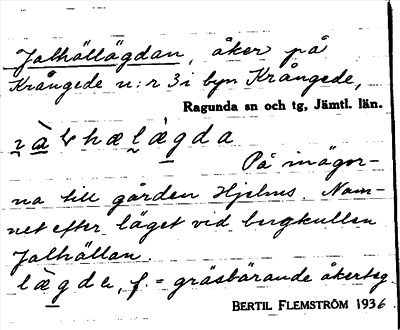 Jalhällägdan, åker på
Krångede n:r 3 i byn Krångede,
Ragunda sn och tg, Jämtl. län.
På inägor-
na till gården Hjelms. Nam-
net efter läget vid bergkullen
Jalhällan.
lägde, f. = gräsbärande åkerteg.
BERTIL FLEMSTRÖM 1936.